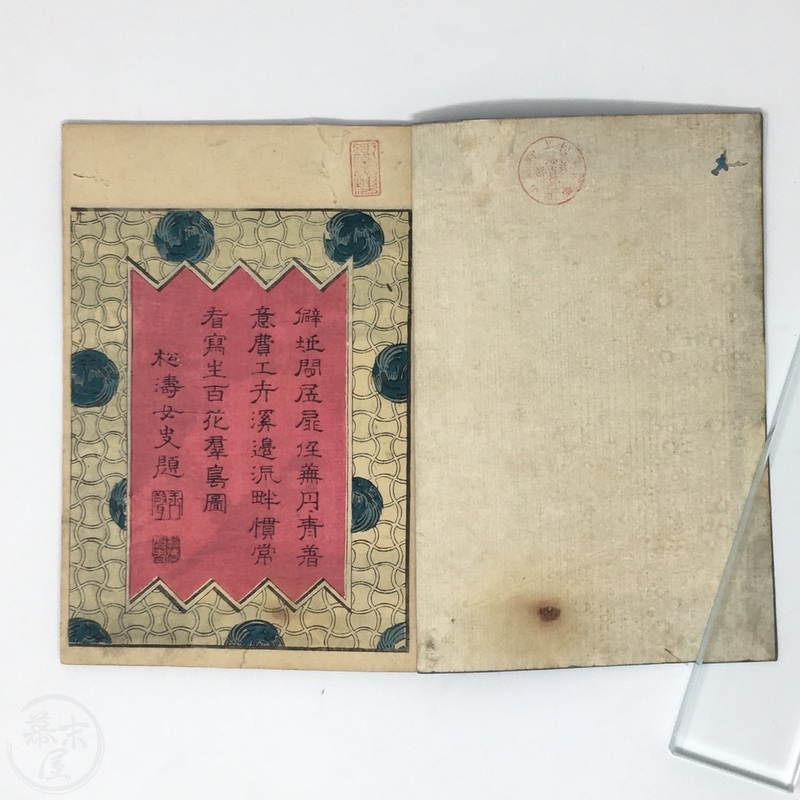 僻址閒居扉径蕪丹青着
意費工夫溪邊流畔慣常
看寫生百花羣鳥圖
松濤女史題
幕末屋